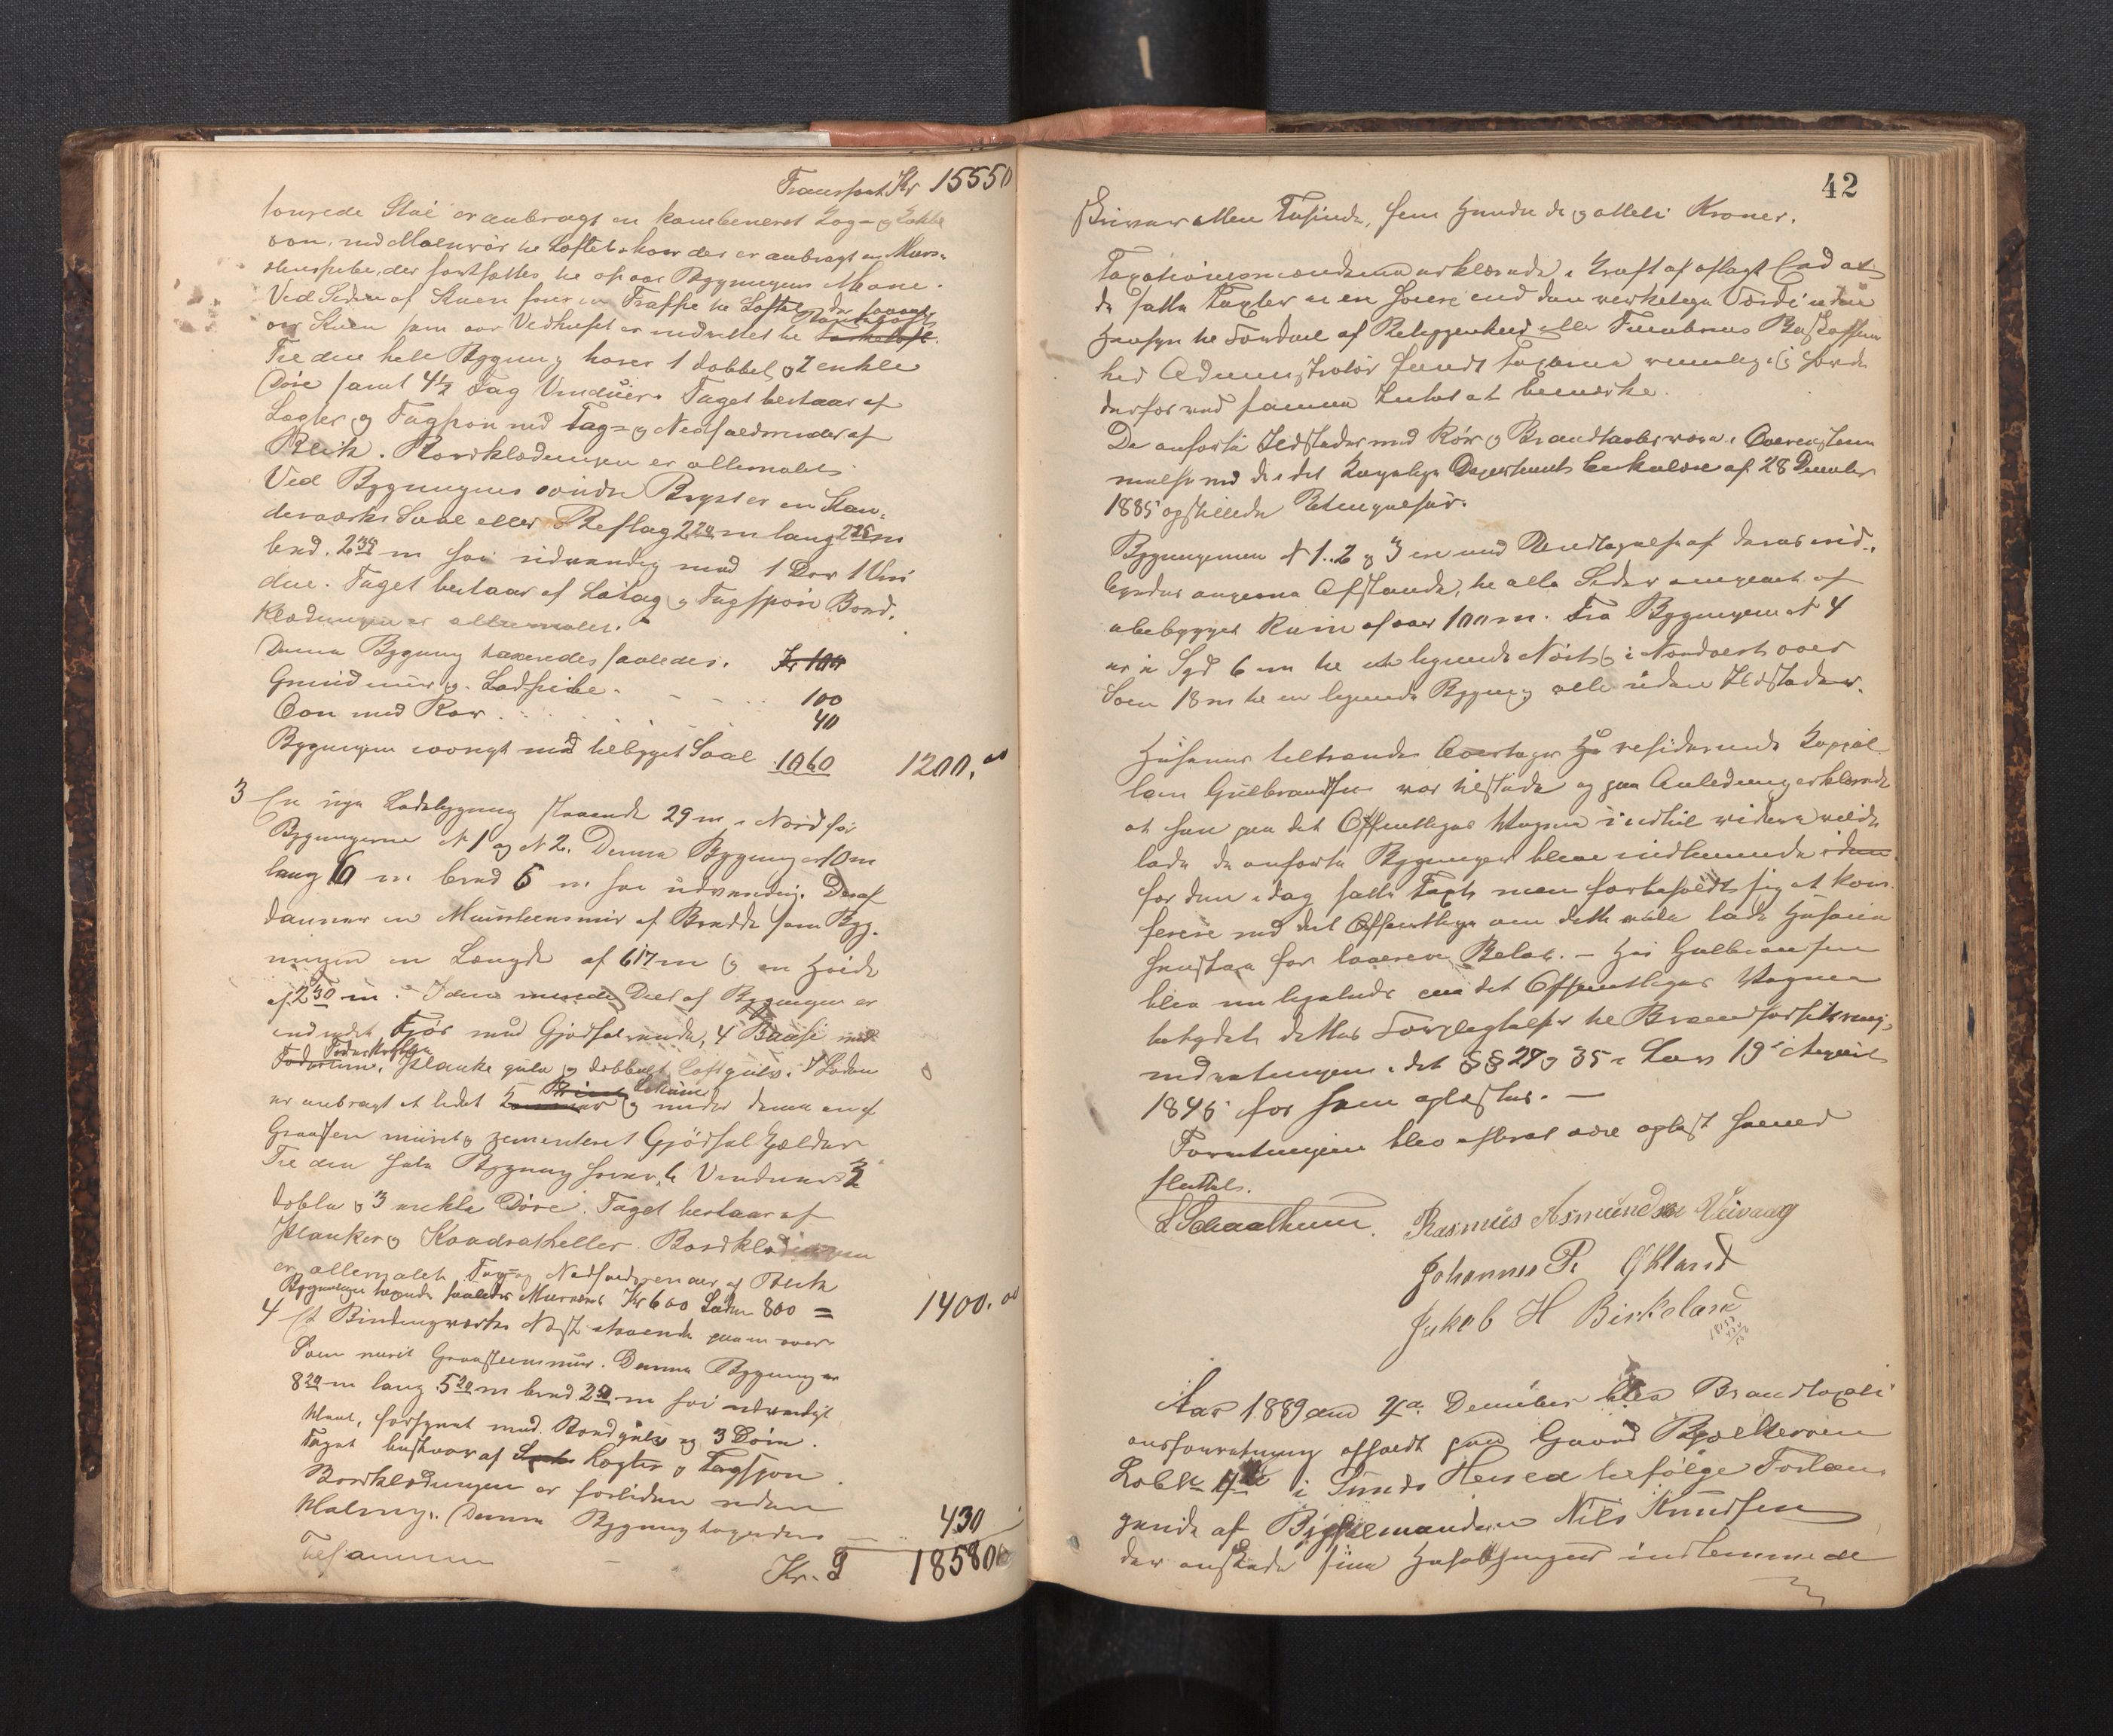 Transport Kr 15550
er anbragt en kombeneret Kog= og Bakke
ovn, med til Loftet hvor der er anbragt en Mur=
stenspibe, der fortsættes til op over Bygningens Møne.
Ved Siden af Stuen fører en Trappe til Loftet, der saavel
over Stuen som over Vedhuset er indrettet til Tørkeloft.
Til den hele Bygning hører 1 dobbel og 7 enkle
Døre samt 4½ Fag Vinduer. Taget bestaar af
Lægter og Tagspon med Tag= og Nedfaldsrender af
Blik. Bordklædningen er oliemalet.
Ved Bygningens søndre er en Stan=
derværks Sval eller Beslag 2 20 m lang 2 25 m
bred. 2 35 m høi udvendig med 1 Dør 1 Vin
due. Taget bestaar af og Tagspon Bord=
klædningen er oliemalet.
Denne Bygning taxeredes saaledes. Kr 100
Grundmur og Ladpibe. 100
Ovn med Rør 40
Bygningen iøvrigt med tilbygget Sval 1060 1200,00
3 En nye Ladebygning staaende 29 m i Nord for
Bygningerne N 1 og N 2. Denne Bygning er 10 m
lang 6 m bred 5 m høi udvendig. Deraf
danner en Murstensmur af Bredde som Byg=
ningen en Længde af 6 17 m og en Høide
af 2 50 m. I den murede Deel af Bygningen er
indredet Fjøs med Gjødselrende, 4 Baase med
Planke gulv og dobbelt Loftgulv. I Laden
er anbragt et lidet og under denne en af
Graasten muret og zementeret Gjødsel Kjelder
Til den hele Bygning hører 6 Vinduer 3
doble og 3 enkle Døre. Taget bestaar af
Planker og Kvadratheller. Bordklædningen
er oliemalet Tag= og Nedfaldsrender af Blik
Bygningen taxeredes saaledes Murværk Kr 600 Laden 800 = 1400.00
4 Et Bindingværks Nøst staaende paa en over
Søen muret Graastensmur. Denne Bygning er
8 20 m lang 5 20 m bred 2 50 m høi udvendigt
Maal, forsynet med Bordgulv og 3 Døre.
Taget bestaar af Lægter og Tagspon.
Bordklædningen er forliden uden
Maling. Denne Bygning taxeredes 430
Tilsammen Kr. 18580
42
Skriver atten Tusinde, fem Hundrede og otteti Kroner.
Taxationsmændene erklærede, i Kraft af aflagt Eed at
de satte Taxter er en høiere end den virkelige Værdi uden
Hensyn til Fordeel af Beliggenhed eller Beskaffen
hed Administrator fandt Taxterne rimelige og havde
derfor ved samme Intet at bemærke.
De anførte Ildsteder med Rør og Brandtavler vare i Overenstem
melse med de i det Kongelige Departements Cirkulære af 28 December
1885 opstillede Betingelser.
Bygningerne N 1. 2 og 3 ere med Undtagelse af deres ind=
byrdes angivne Afstande, til alle Sider omgivet af
ubebygget Rum af over 100 m. Fra Bygningen N 4
er i Syd 6 m til et liggende Nøst og i Nordvest over
Søen 18 m til en liggende Bygning alle uden Ildsteder.
Husenes tiltrædende Overtager Hr residerende Kapel
lan Gulbrandsen var tilstede og paa Anledning erklærede
at han paa det Offentliges Vegne indtil videre vilde
lade de anførte Bygninger blive indlemmede
for den i dag satte Taxt men forbeholdt sig at kon=
ferere med det Offentlige om dette vilde lade Husene
henstaa for lavere Beløb. — Hr Gulbrandsen
blev med det Offentliges Vegne
betydet dettes Forpligtelser til Brandforsikrings
indretningen i det §§ 27 og 35 i Lov 19 August
1845 for ham oplæstes. —
Forretningen blev efterat være oplæst hermed
sluttet.
Rasmus Asmundsen Veivaag
Johannes P. Økland
Jakob H Birkeland
Aar 1889 den 7de December blev Brandtaxati
onsforretning afholdt paa Gaard Bjelkerøen
Løb N i Sunds Herred ifølge Forlan
gende af Bygselmanden Nils Knudsen
der ønskede sine Husbygninger indlemmede